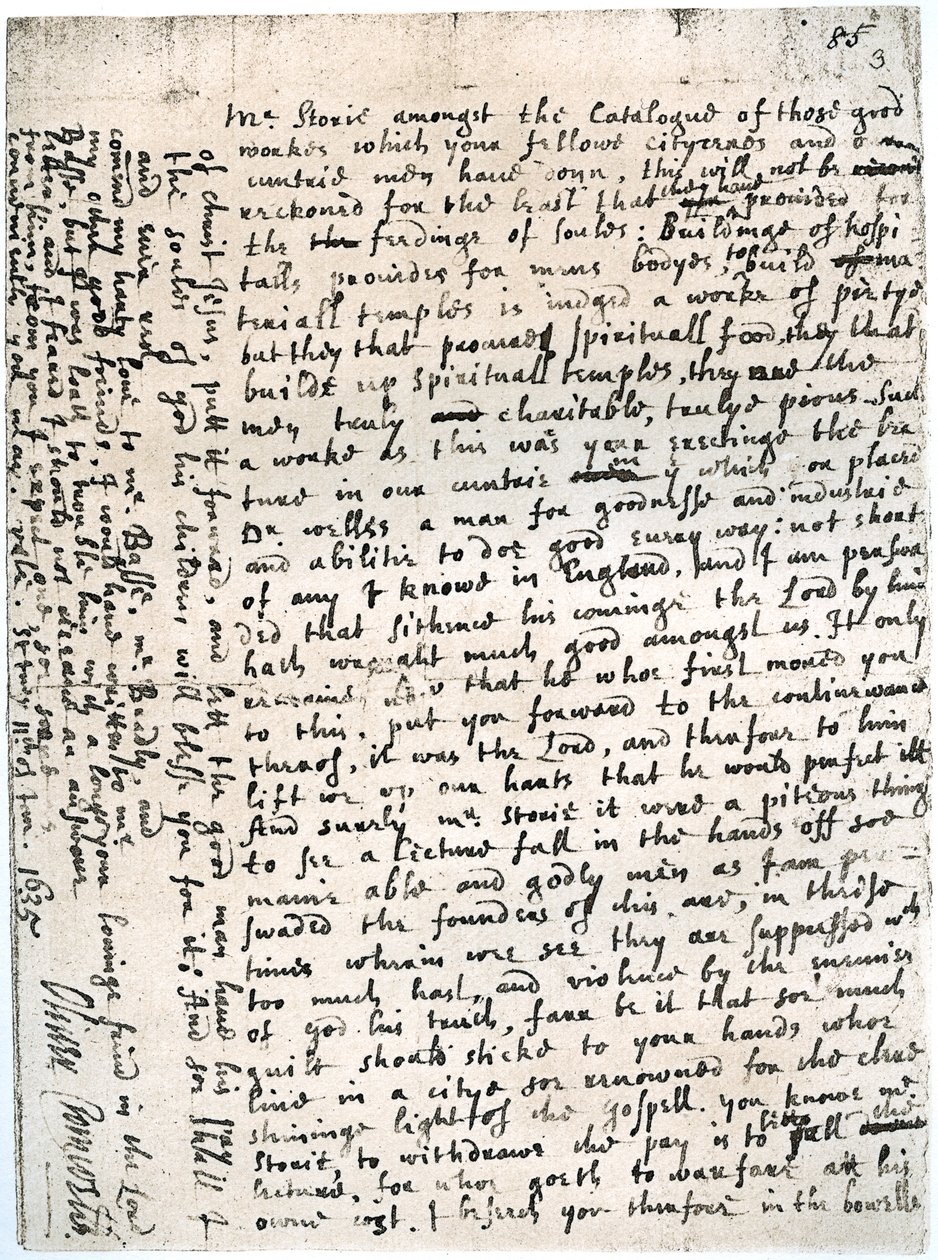 85
3
Mr. Storie amongst the Catalogue of those good
workes which your fellowe citycenes and our
cuntrie men have donn, this will not be
reckoned for the least that they have provided for
the feedinge of soules: Buildinge of hospi-
talls provides for mens bodyes, to build ma
teriall temples is iudged a worke of pietye
but they that procure spirituall food, they that
builde up spirituall temples, they are the
men truly charitable, trulye pious. Such
a worke as this was your erectinge the lec
ture in our cuntrie in ye which you placed
Dr. Welles a man for goodnesse and industrie
and abilitie to doe good every way: not short
of any I knowe in England, and I am perswa
ded that sithence his cominge the Lord by him
hath wrought much good amongst us. It only
remaines that he whoe first moved you
to this, put you forward to the continewance
therof, it was the Lord, and therfore to him
lift we up our harts that he would perfect itt
And surely mr. Storie it were a piteous thing
to see a lecture fall in the hands off soe
manie able and godly men as I am per=
swaded the founders of this are, in theise
times wherin wee see they are suppressed wth
too much hast, and violence by the enemies
of god his truth, farr be it that soe much
guilt should sticke to your hands whoe
live in a citye soe renowned for the clere
shininge light of the gospell. You knowe mr.
Storie, to withdrawe the pay is to lett fall the
lecture, for whoe goeth to warfare att his
owne cost. I beseech you therfore in the bowells
of Christ Jesus, putt it forward, and lett the good man have his pay
the soules of god his children, will blesse you for it: And soe shall I
and ever rest your lovinge frind in the Lord
Oliver Cromwell
comend my harty love to mr. Busse, mr. Beadly, and
my other good frinds, I would have written to mr.
Busse, but I was loath to trouble him with a longe
letter, and I feard I should not receave an answere
from him, from you I expect one soe soone as
conveniently you may. Vale. St Ives 11th of Jan. 1635